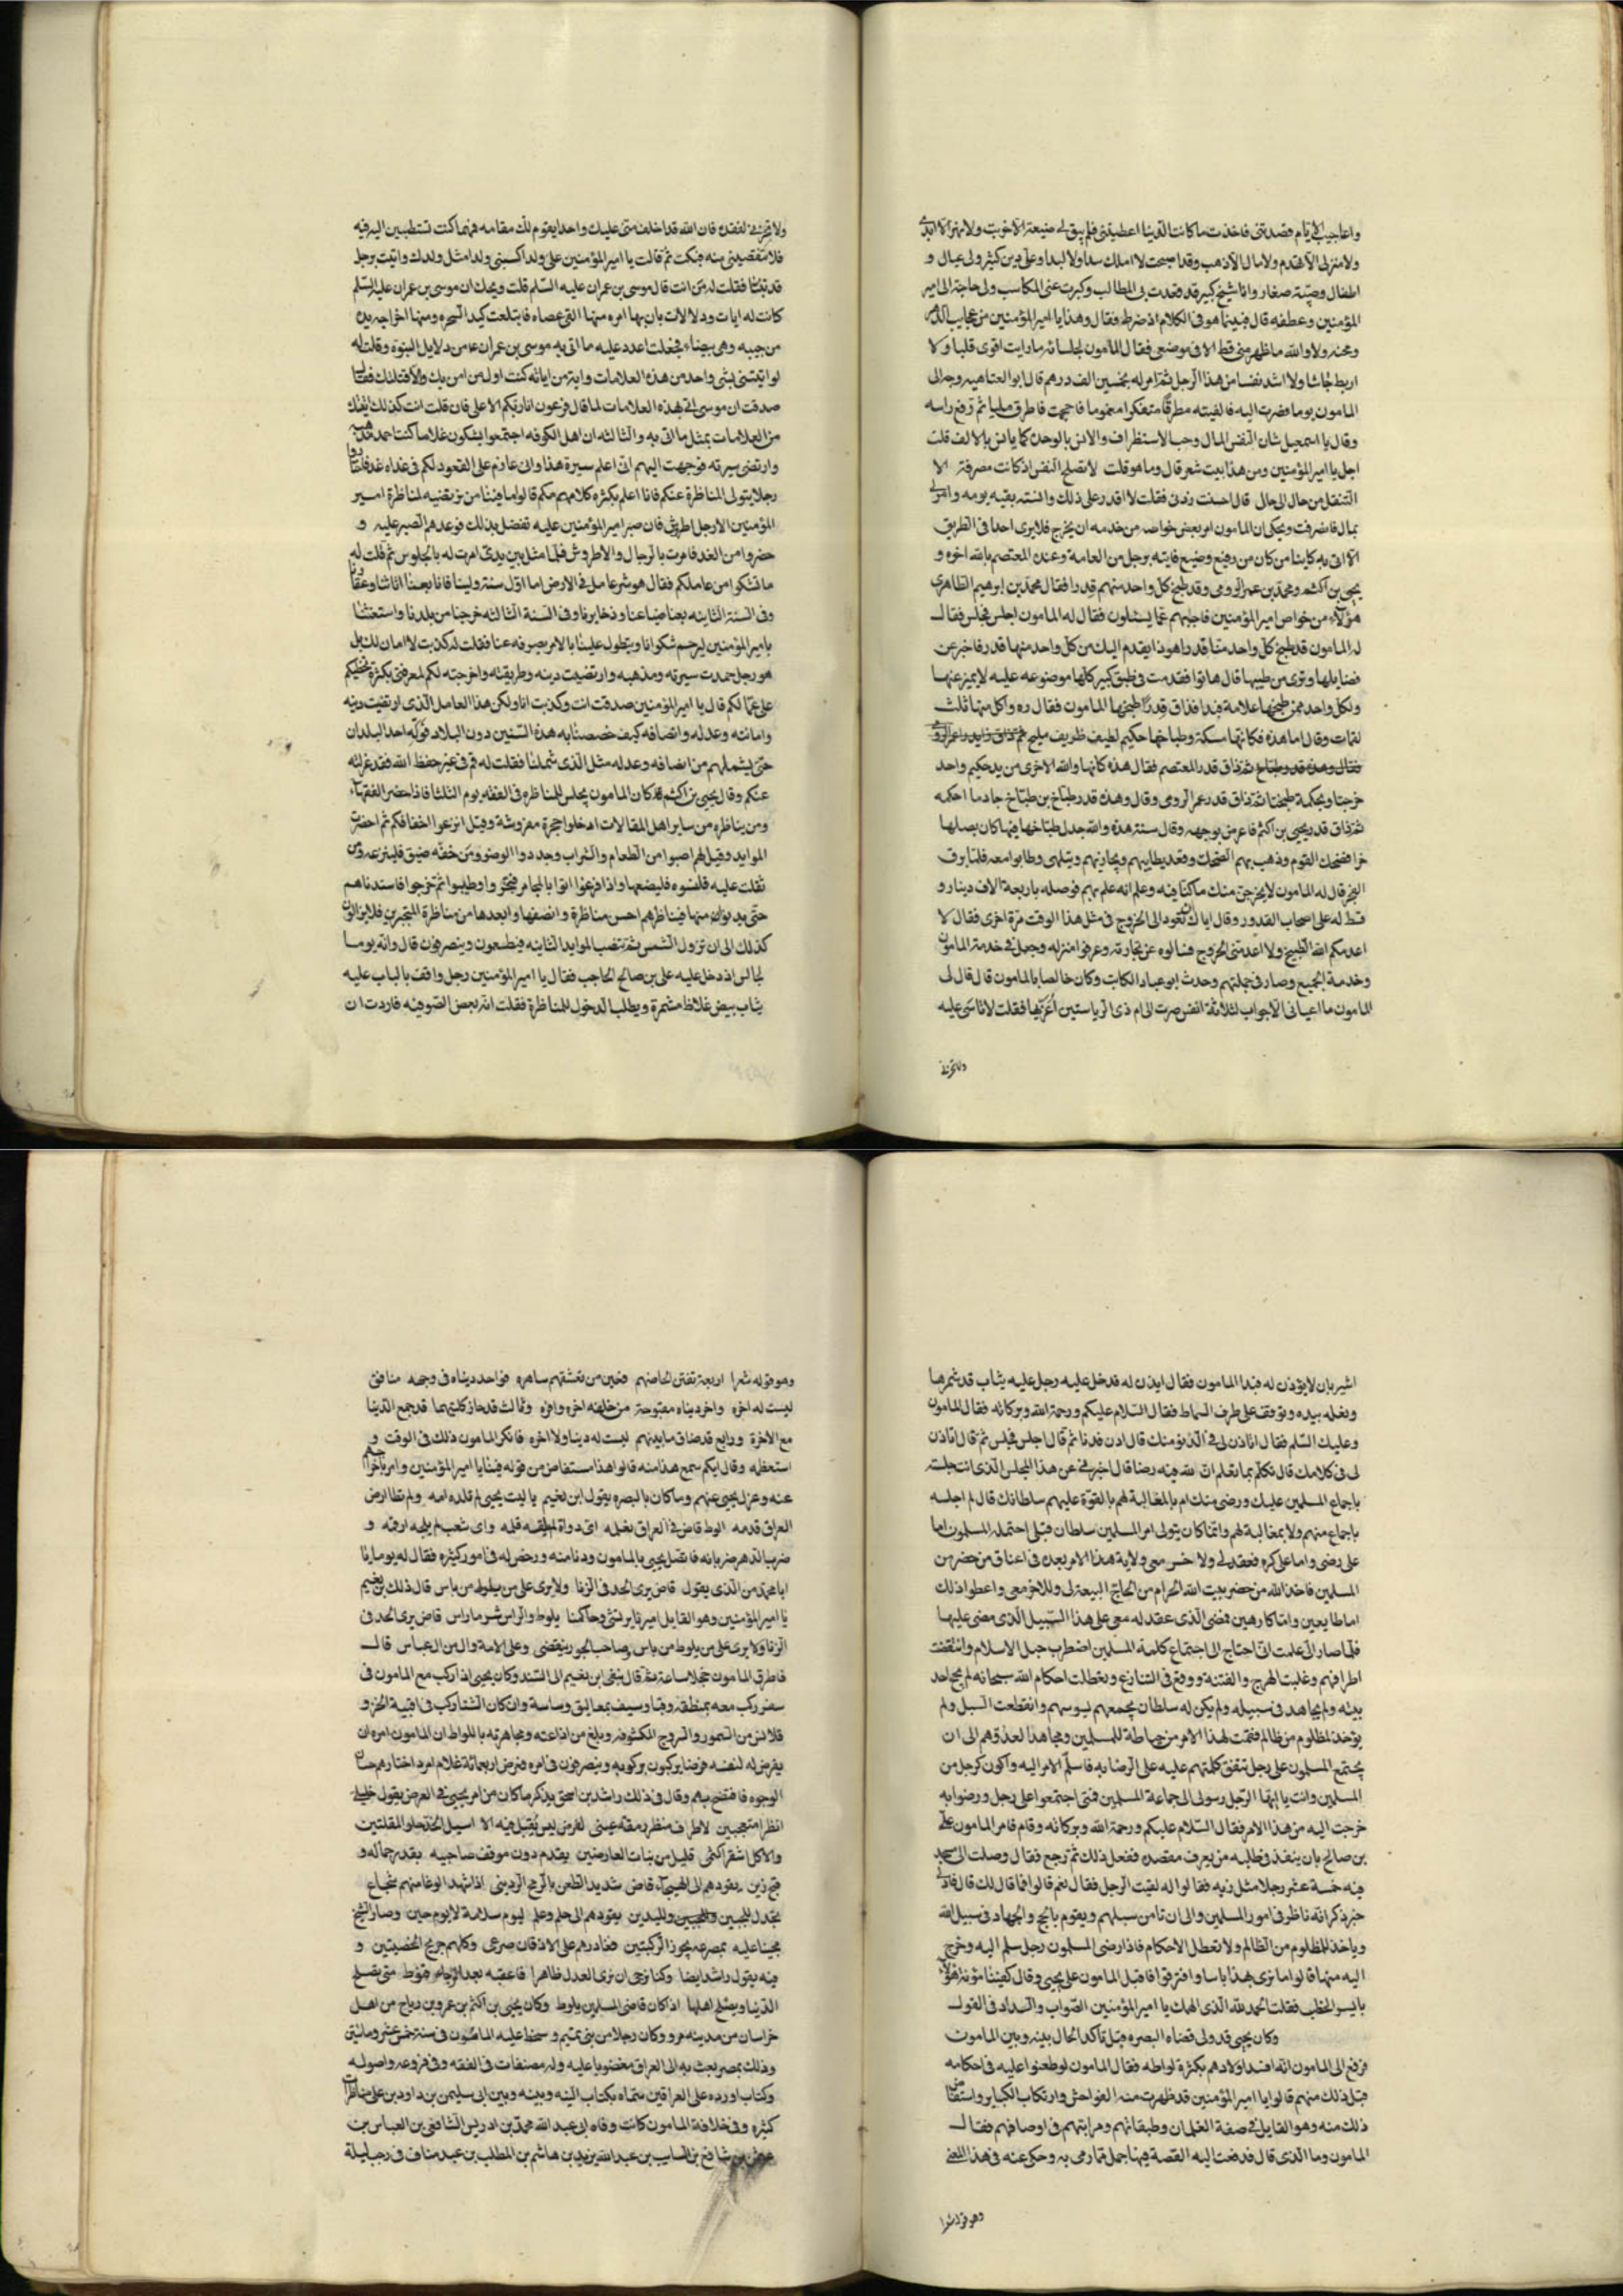 واعاجيب الايام قصدتنى فاخذت ما كانت الدنيا اعطيتنى فلم يبق لى ضيعة الاخربت ولا نهر الا اندفن
ولا منزل الا تهدم ولا مال الا ذهب وقد اصبحت لا املك سبدا ولا لبدا وعلى دين كثير ولى عيال و
اطفال وصبية صغار وانا شيخ كبير قد قعدت بى المطالب وكبرت عنى المكاسب ولى حاجة الى امير
المؤمنين وعطفه قال فبينما هو فى الكلام اذ ضرط فقال وهذا يا امير المؤمنين من عجايب الدهر
ومحنه ولا والله ما ظهر منى قط الا فى موضعى فقال المأمون لجلسائه ما رايت اقوى قلبا ولا
اربط جاشا ولا اشد نفسا من هذا الرجل ثم امر له بخمسين الف درهم قال ابو العتاهيه وجه الى
المامون يوما فصرت اليه فالفيته مطرقا متفكرا مغموما فاحجمت فاطرق مليا ثم رفع راسه
وقال يا اسمعيل شان النفس الملل وحب الاستظراف والانس بالوحدة كما يانس بالالف قلت
اجل يا امير المؤمنين ومن هذا بيت شعر قال وما هو قلت لا تصلح النفس اذ كانت مصرفة الا
التنقل من حال الى حال قال احسنت زدنى فقلت لا اقدر على ذلك وانسته بقيه يومه وامر لى
بمال فانصرفت ويحكى ان المامون امر بعض خواصه من خدمه ان يخرج فلا يرى احدا فى الطريق
الا اتى به كاينا من كان من رفيع وضيع فاتيه برجل من العامة وعنده المعتصم بالله اخوه و
يحيى بن اكثم ومحمد بن عمر الرومى وقد طبخ كل واحد منهم قدرا فقال محمد بن ابرهيم الطاهرى
هؤلاء من خواص امير المؤمنين فاجبهم عما يسئلون فقال له المامون اجلس فجلس فقال
له المامون قد طبخ كل واحد منا قدرا وهو ذا يقدم اليك من كل واحد منها قدر فاخبر عن
فضايلها وترى من طيبها قال هاتوا فقدمت فى طبق كبير كلها موضوعه عليه لا يميز عنها
ولكل واحد ممن طبخها علامة فبدا فذاق قدرا طبخها المامون فقال زه واكل منها ثلث
لقمات وقال اما هذه فكانها مسكة وطباخها حكيم لطيف ظريف مليح
ثم ذاق قدر المعتصم فقال هذه كانها والله الاخرى من يد حكيم واحد
خرجتا وبحكمة طبختا ثم ذاق قدر عمر الرومى وقال وهذه قدر طباخ بن طباخ جاد ما احكمه
ثم ذاق قدر يحيى بن اكثم فاعرض بوجهه وقال سنة هذه والله جعل طباخها فيها مكان بصلها
خرا فضحك القوم وذهب بهم الضحك وقعد يطايبهم ويحاربهم ويتلهى وطابوا معه فلما برق
الفجر قال له المامون لا يخرجن منك ما كنا فيه وعلم انه علم بهم فوصله باربعة الاف دينار و
قسط له على اصحاب القدور وقال اياك ان تعود الى الخروج فى مثل هذا الوقت مرة اخرى فقال لا
اعدمكم الله الطبخ ولا اعدمنى الخروج فسالوه عن تجارته وعرفوا منزله وجعل فى خدمة المامون
وخدمة الجميع وصار فى جملتهم وحدث ابو عباد الكاتب وكان خالصا بالمامون قال قال لى
المامون ما اعيانى الا جواب لثلاثة انفس صرت الى ام ذى الرياستين اعزيها فقلت لا تاسى عليه
ولا تحزنى
ولا تحزنى لفقده فان الله قد اخلف منى عليك واحدا يقوم لك مقامه فمهما كنت تستطيبين اليه فيه
فلا تنقصينى منه فبكت ثم قالت يا امير المؤمنين على ولد اكسبنى ولدا مثل ولدك واتيت برجل
قد تنبئ فقلت له من انت قال موسى بن عمران عليه السلم قلت ويحك ان موسى بن عمران عليه السلم
كانت له ايات ودلالات بان بها امره منها القى عصاه فابتلعت كيد السحره ومنها اخراجه يده
من جيبه وهى بيضاء فجعلت اعدد عليه ما اتى به موسى بن عمران عا من دلايل النبوة وقلت له
لو اتيتنى بشى واحد من هذه العلامات وايه من اياته كنت اول من امن بك والا قتلتك فقال
صدقت ان موسى اتى بهذه العلامات لما قال فرعون انا ربكم الاعلى فان قلت انت كذلك ايتك
من العلامات بمثل ما اتى به والثالثه ان اهل الكوفه اجتمعوا يشكون غلاما كنت احمد مذهبه
وارتضى سيرته فوجهت اليهم انى اعلم سيرة هذا وانى عازم على القعود لكم فى غداة غد فاختاروا
رجلا يتولى المناظرة عنكم فانا اعلم بكثره كلامهم مكم قالوا ما فيننا من نرتضيه لمناظرة امير
المؤمنين الا رجل اطروش فان صبر امير المؤمنين عليه تفضل بذلك فوعدهم الصبر عليه و
حضروا من الغد فامرت بالرجال والاطروش فلما مثل بين يدى امرت له بالجلوس ثم قلت له
ما تشكوا من عاملكم فقال هو شر عامل فى الارض اما اول سنة ولينا فانا بعنا اثاثنا وعقارنا
وفى السنة الثانيه بعنا ضياعنا وذخايرنا وفى السنة الثالثه خرجنا من بلدنا واستغثنا
بامير المؤمنين ليرحم شكوانا ويتطول علينا بالامر بصرفه عنا فقلت له كذبت لا امان لك بل
هو رجل حمدت سيرته ومذهبه وارتضيت دينه وطريقته واخرجته لكم لمعرفتى بكثرة سخطكم
على عمالكم قال يا امير المؤمنين صدقت انت وكذبت انا ولكن هذا العامل الذى ارتضيت دينه
وامانته وعدله وانصافه كيف خصصتنا به هذه السنين دون البلاد فوله احد البلدان
حتى يشملهم من انصافه وعدله مثل الذى شملنا فقلت له قم فى غير حفظ الله فقد عزلته
عنكم وقال يحيى بن اكثم كان المامون يجلس للمناظره فى الفقه يوم الثلثا فاذا حضر الفقهاء
ومن يناظره من ساير اهل المقالات ادخلوا حجرة مفروشة وقيل انزعوا اخفافكم ثم احضرت
الموايد وقيل لهم اصيبوا من الطعام والشراب وجددوا الوضو ومن خفه ضيق فلينزعه ومن
ثقلت عليه قلنسوه فليضعها واذا فرغوا اتوا بالمجامر فبخروا وطيبوا ثم خرجوا فاستدناهم
حتى يدنوا منها فيناظرهم احسن مناظرة وانصفها وابعدها من مناظرة المتجبرين فلا يزالون
كذلك الى ان تزول الشمس ثم تنصب الموايد الثانيه فيطعمون وينصرفون قال وانه يوما
لجالس اذ دخل عليه على بن صالح الحاجب فقال يا امير المؤمنين رجل واقف بالباب عليه
ثياب بيض غلاظ مشمرة ويطلب الدخول للمناظرة فقلت انه بعض الصوفيه فاردت ان
اشير بان لا يؤذن له فبدا المامون فقال ايذن له فدخل عليه رجل عليه ثياب قد شمرها
ونعله بيده فوقف على طرف البساط فقال السلام عليكم ورحمة الله وبركاته فقال المامون
وعليك السلم فقال اتاذن لى فى الدنو منك قال ادن فدنا ثم قال اجلس فجلس ثم قال اتاذن
لى فى كلامك قال تكلم بما تعلم ان لله فيه رضا قال اخبرنى عن هذا المجلس الذى انت جلسته
باجماع المسلمين عليك ورضى منك ام بالمغالبة لهم بالقوة عليهم بسلطانك قال لم اجلسه
باجماع منهم ولا بمغالبة لهم وانما كان يتولى امر المسلمين سلطان قبلى احتمله المسلمون اما
على رضى واما على كره فعقد لى ولاخر معى ولاية هذا الامر بعده فى اعناق من حضر من
المسلمين فاخذ الله من حضر بيت الله الحرام من الحاج البيعة لى وللاخر معى واعطوا ذلك
اما طايعين واما كارهين فمضى الذى عقد له معى على هذا السبيل الذى مضى عليها
فلما صار الى علمت انى احتاج الى اجتماع كلمة المسلمين اضطرب حبل الاسلام وانتقضت
اطرافهم وغلبت الهرج والفتنة ووقع فى التنازع وبطلت احكام الله سبحانه لم يحج احد
بيته ولم يجاهد فى سبيله ولم يكن له سلطان يجمعهم ليوسهم وانقطعت السبل ولم
يؤخذ لمظلوم من ظالم فقمت لهذا الامر من حياطة للمسلمين ومجاهدا لعدوهم الى ان
يجتمع المسلمون على رجل تتفق كلمتهم عليه على الرضا به فاسلم الامر اليه واكون كرجل من
المسلمين وانت يا ايها الرجل رسولى الى جماعة المسلمين فمتى اجتمعوا على رجل ورضوا به
خرجت اليه من هذا الامر فقال السلام عليكم ورحمة الله وبركاته وقام فامر المامون على
بن صالح بان ينفذ فى طلبه من يعرف مقصده ففعل ذلك ثم رجع فقال وصلت الى مسجد
فيه خمسة عشر رجلا مثل زيه فقالوا له لقيت الرجل فقال نعم قالوا فما قال لك قال قال لى
خير ذكر انه ناظر فى امور المسلمين والى ان تامن سبلهم ويقوم بالحج والجهاد فى سبيل الله
وياخذ للمظلوم من الظالم ولا تعطل الاحكام فاذا رضى المسلمون رجل سلم اليه وخرج
اليه منها قالوا ما نرى بهذا باسا وافترقوا فاقبل المامون على يحيى وقال كفينا مؤنة هؤلاء
بايسر الخطب فقلت الحمد لله الذى الهمك يا امير المؤمنين الصواب والسداد فى القول
وكان يحيى قد ولى قضاء البصره قبل تاكد الحال بينه وبين المامون
فرفع الى المامون انه افسد اولادهم بكثرة لواطه فقال المامون لو طعنوا عليه فى احكامه
قبل ذلك منهم قالوا يا امير المؤمنين قد ظهرت منه الفواحش وارتكاب الكباير واستفاض
ذلك منه وهو القايل فى صفة الغلمان وطبقاتهم ومراتبهم فى اوصافهم فقال
المامون وما الذى قال فدفعت اليه القصة فيها جمل مما رمى به وحكى عنه فى هذا المعنى
وهو قوله شعرا
وهو قوله شعرا اربعة تفتن الحاضنهم فعين من تعشقهم ساهره فواحد دنياه فى وجهه منافق
ليست له اخره واخر دنياه مفتوحة من خلفه اخره وافره وثالث قد حاز كلتيهما قد جمع الدنيا
مع الاخرة ورابع قد ضاق ما بينهم ليست له دنيا ولا اخره فانكر المامون ذلك فى الوقت و
استعظمه وقال ايكم سمع هذا منه قالوا هذا مستفاض من قوله فينا يا امير المؤمنين وامر باخراجهم
عنه وعزل يحيى عنهم وما كان بالبصره يقول ابن نعيم يا ليت يحيى لم تلده امه ولم تطا ارض
العراق قدمه الوط قاض فى العراق نعلمه اى دواة لم يلقه قلمه واى شعب لم يلجه ارقمه و
ضرب الدهر ضربانه فاتصل يحيى بالمامون ودنا منه ورخص له فى امور كثيره فقال له يوما يا
ابا محمد من الذى يقول قاض يرى الحد فى الزنا ولا يرى على من يلوط من باس قال ذلك بن نعيم
يا امير المؤمنين وهو القايل اميرنا يرتشى وحاكمنا يلوط والراس شر ما راس قاض يرى الحد فى
الزنا ولا يرى على من يلوط من باس وصاحب الجور ينقضى وعلى الامة وال من ال عباس قال
فاطرق المامون خجلا ساعة ثم قال ينفى ابن نعيم الى السند وكان يحيى اذا ركب مع المامون فى
سفر ركب معه بمنطقة وقبا وسيف بمعاليق وساسة وان كان الشتا ركب فى اقبية الخز و
قلانس من السمور والسروج المكشوفه وبلغ من اذاعته ومجاهرته باللواط ان المامون امره ان
يفرض له لنفسه فرضا يركبون بركوبه وينصرفون فى امره ففرض اربعمائة غلام امرد اختارهم حسان
الوجوه فافتضح بهم وقال فى ذلك راشد بن اسحق يذكر ما كان من امر يحيى فى العرض يقول خليلى
انظرا متعجبين لاطراف منظر رمقة عينى لفرض ليس يقبل فيه الا اسيل الخد حلو المقلتين
والا كل اشقر اكثمى قليل من نبات العارضين يقدم دون موقف صاحبيه بقدر جماله و
قبح زين يقودهم الى الهيجاء قاض شديد الطعن بالرمح الردينى اذا شهد الوغا منهم شجاع
تجدل للجبين ولليدين يقودهم الى حلم وعلم ليوم سلامة لا يوم حين وصار الشيخ
محنيا عليه بمصرعه يحوز الركبتين فغادرهم على الاذقان صرعى وكلهم جريح الخصيتين و
فيه يقول راشد ايضا وكنا نرجى ان نرى العدل ظاهرا فاعقبه بعد الرجاء قنوط متى يصلح
الدنيا ويصلح اهلها اذ كان قاضى المسلمين يلوط وكان يحيى بن اكثم بن عمرو بن رباح من اهل
خراسان من مدينه مرو وكان رجلا من بنى تميم وسخط عليه المامون فى سنة خمس عشر ومائتين
وذلك بمصر بعث به الى العراق مغضوبا عليه وله مصنفات فى الفقه وفى فروعه واصوله
وكتاب اورده على العراقين سماه بكتاب التنبيه وبينه وبين ابى سليمن بن داود بن على مناظرات
كثيره وفى خلافة المامون كانت وفاة ابى عبد الله محمد بن ادريس الشافعى بن العباس بن
عثمن بن شافع بن السايب بن عبد الله بن يزيد بن هاشم بن المطلب بن عبد مناف فى رجب ليلة